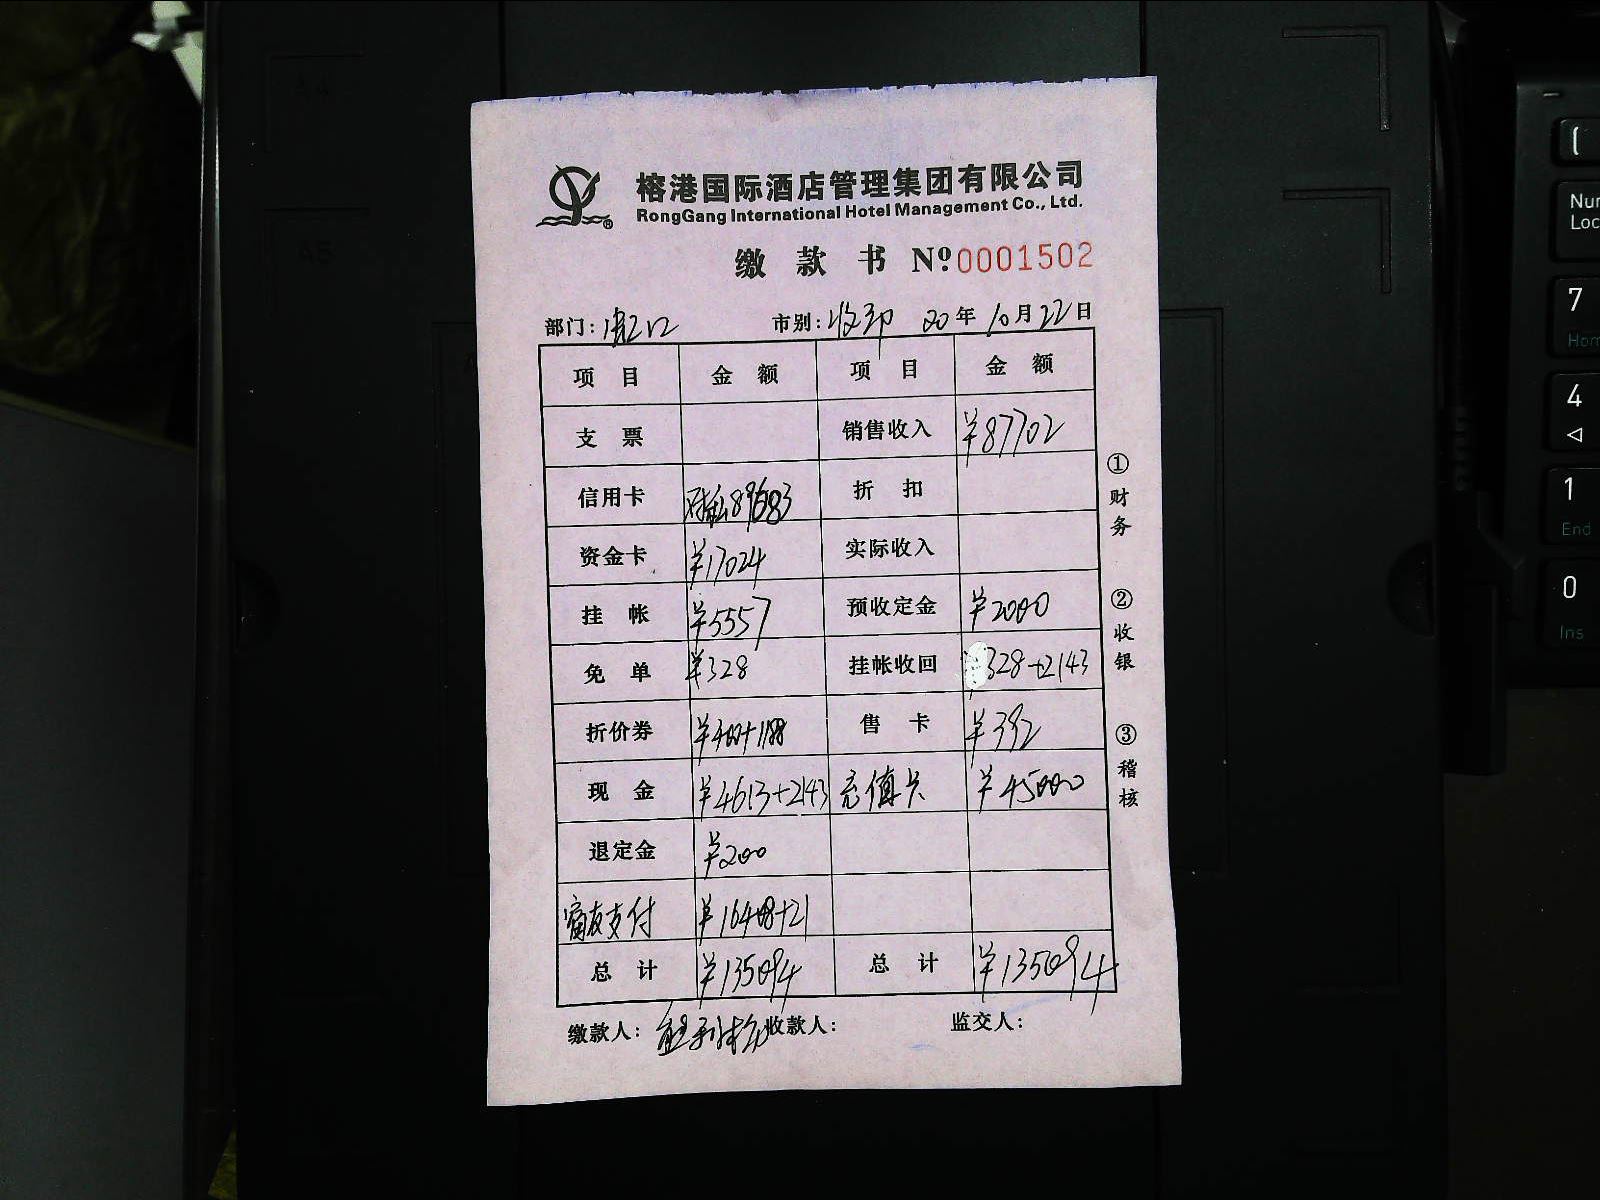 榕港国际酒店管理集团有限公司
RongGang International Hotel Management Co., Ltd.
缴 款 书 Nº.0001502
部门: 市别: 收印 20年10月22日
项 目 金 额 项 目 金 额
支 票 销售收入 ¥87702
信用卡 对私89683 折 扣
资金卡 ¥17024 实际收入
挂 帐 ¥5557 预收定金 ¥2000
免 单 ¥328 挂帐收回 328+2143
折价券 ¥400+1188 售 卡 ¥392
现 金 ¥4613+2143 充值卡 ¥45000
退定金 ¥200
支付 ¥16408+21
总 计 ¥135094 总 计 ¥135094
缴款人: 收款人: 监交人:
①财务 ②收银 ③稽核
A4
A5
Num
Lock
7
Home
4
1
End
0
Ins